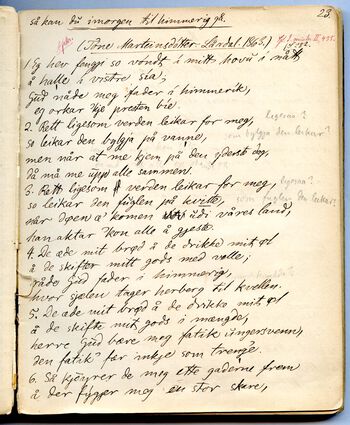 så kan du imorgen til himmerig gå.
23.
(Tone Marteinsdotter Lårdal. 1863.)
1. Eg hev fengji so vondt i mitt hovu i nått
å halle i vistre sia;
Gud nåde meg fader i himmerik,
eg orkar kje presten bie.
2. Rett ligesom verden leikar for meg,
ligesaa?
so leikar den bylgja på vanne,
som bylgja den leikar?
men når at me kjem på den yderste dag,
då må me upp alle sammen.
3. Rett ligesom verden leikar for meg,
ligesaa?
so leikar den fuglen på kviste,
som fuglen den leikar?
når Døen å komen udi våres land,
han aktar kon alle å gjeste.
4. De æde mit brød å de drikke mit øl
å de skifter mitt gods med volle;
råde Gud fader i himmerig,
hvor sjelen tager herberg til kvellen.
5. De æde mit brød å de drikke mit øl
å de skifte mit gods i mangde,
herre Gud bære meg fatik ungersvenn,
den fatik får inkje som trenge.
6. Så kjöyrer de meg etter gaderne frem
å der fygjer meg en stor skare,